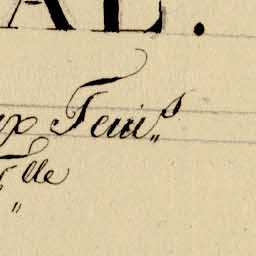 AL.
ux Feui,,s
F,,lle